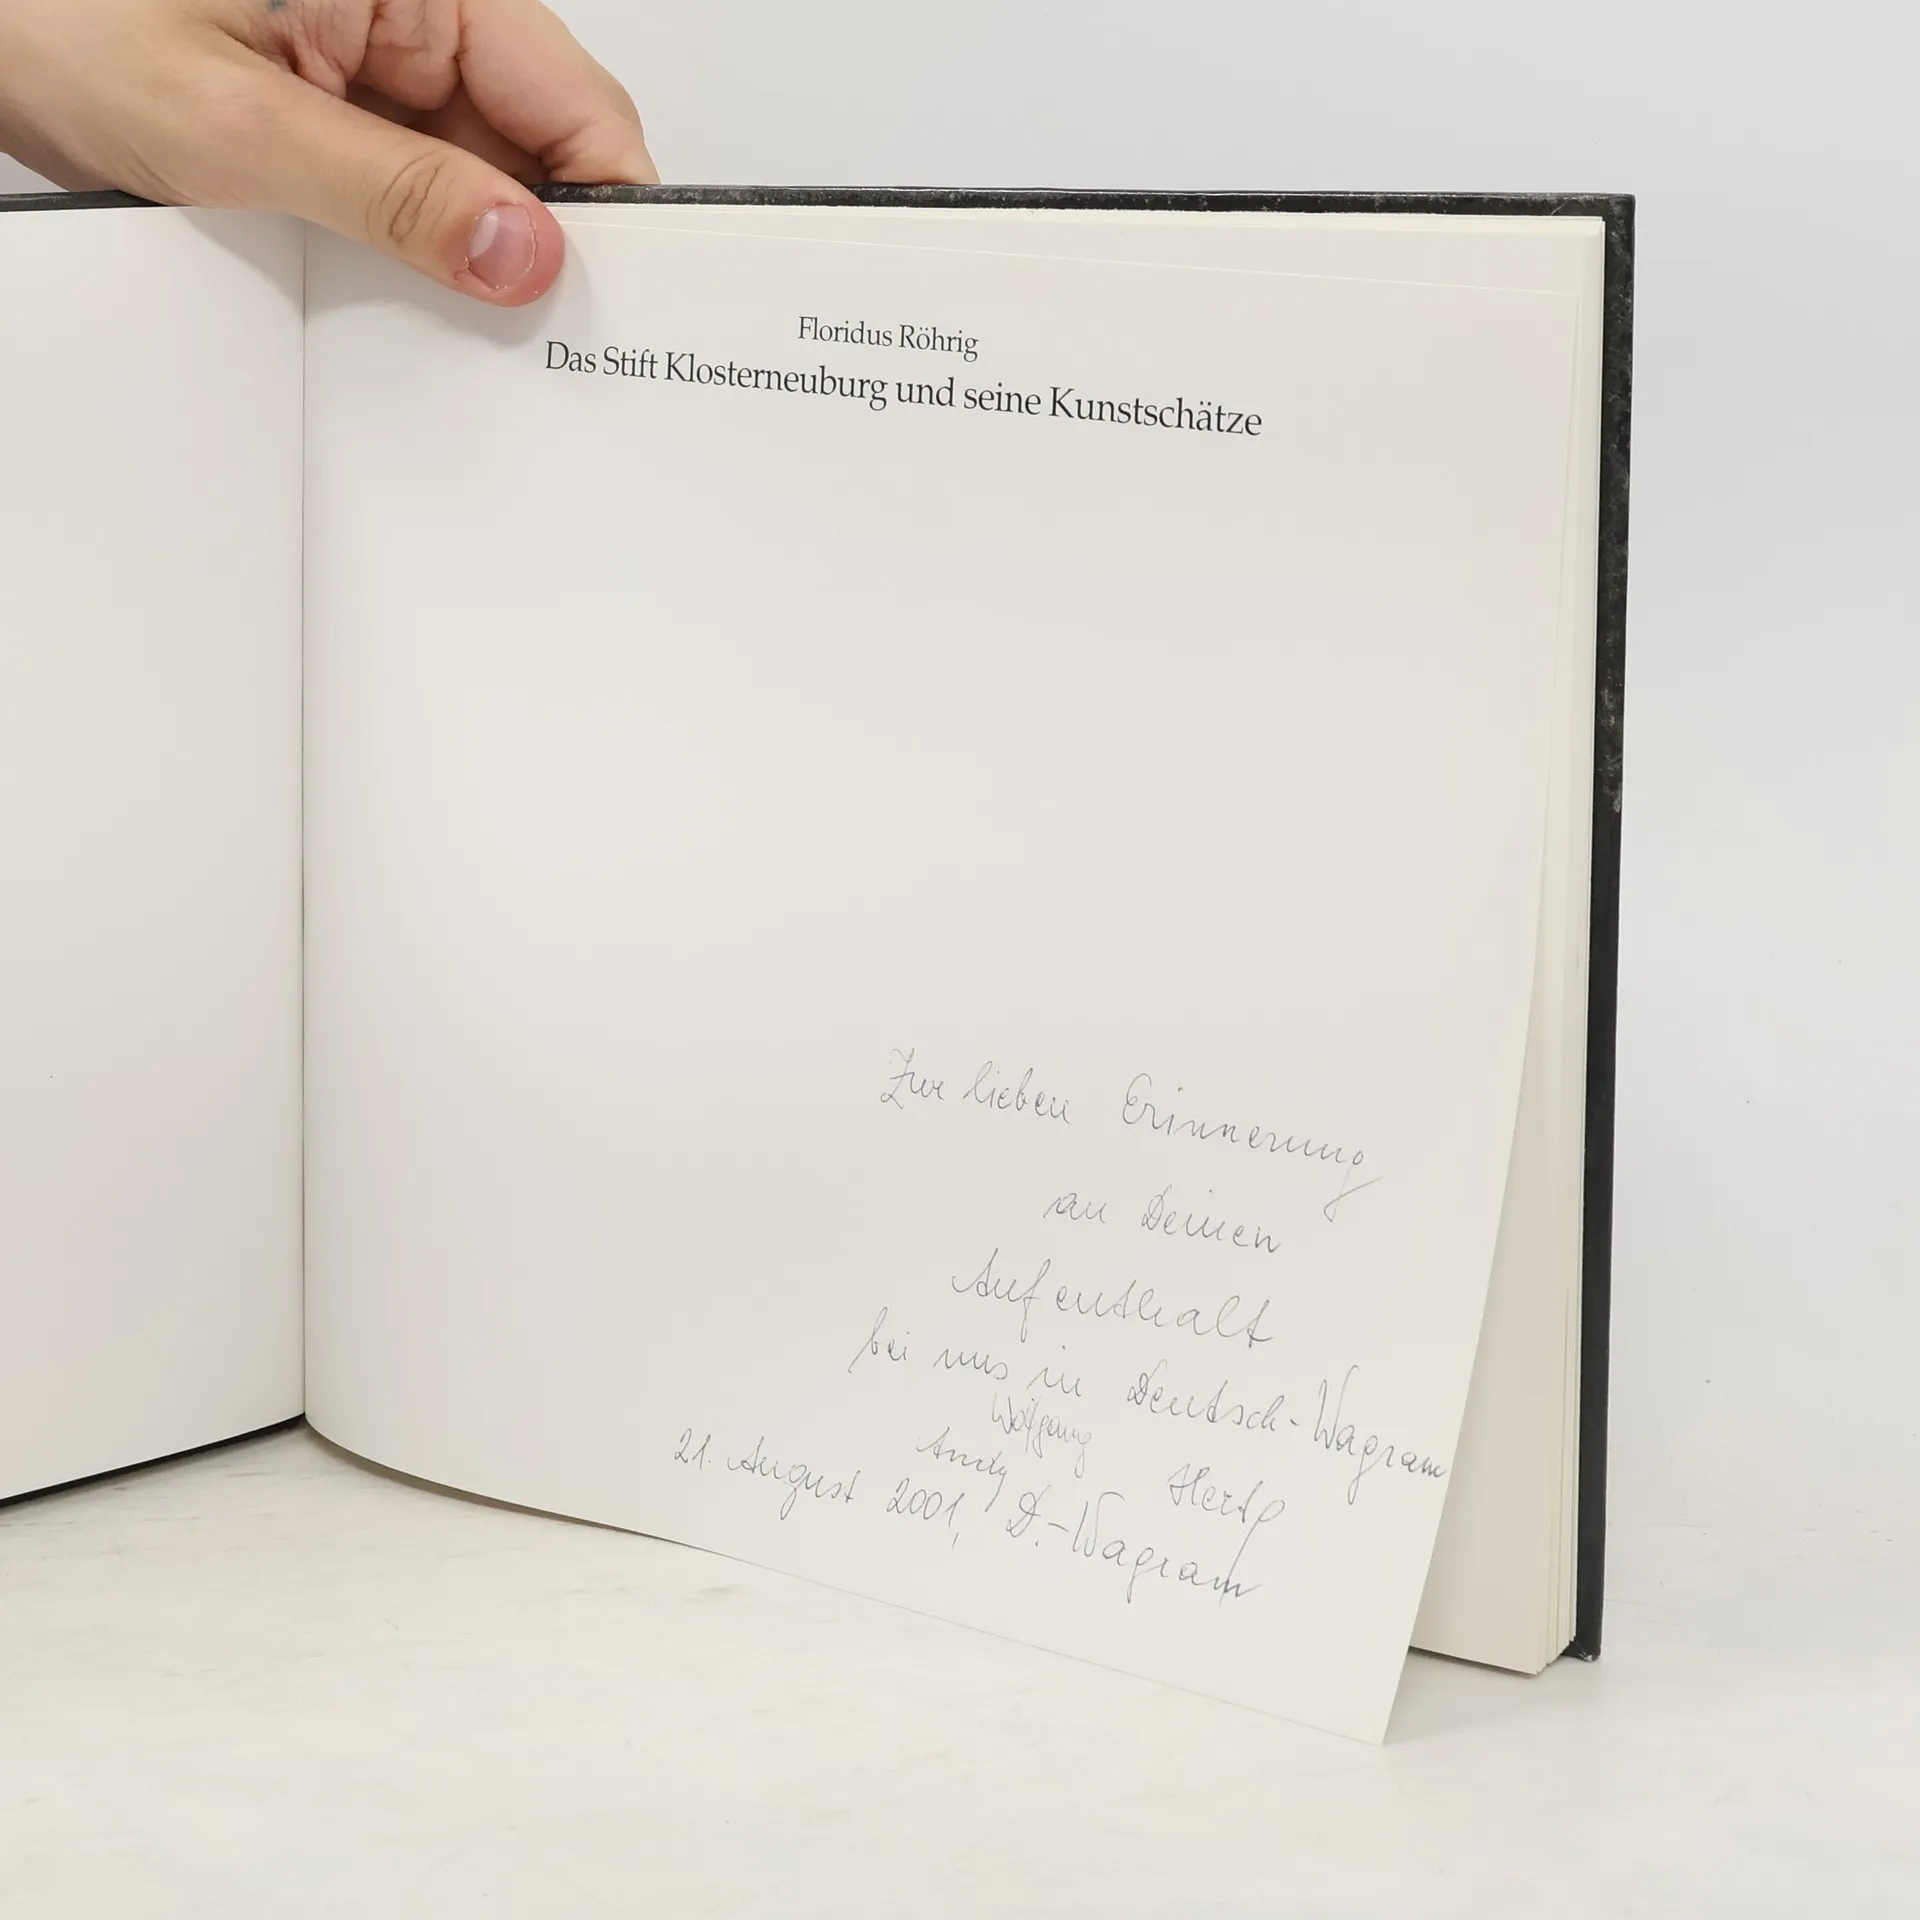 Floridus Röhrig
Das Stift Klosterneuburg und seine Kunstschätze
Zur lieben Erinnerung
an Deinen
Aufenthalt
bei uns in Deutsch-Wagram
Wolfgang
Andy
21. August 2001, D.-Wagram